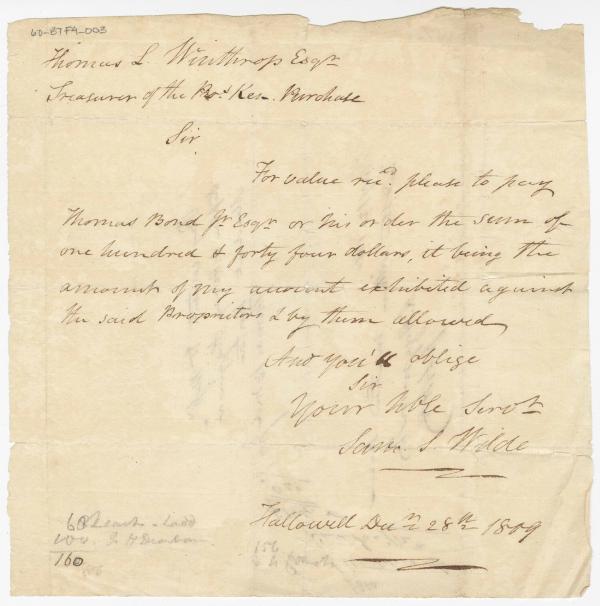 60-87FA-003
Thomas L. Winthrop Esqr
Treasurer of the Pro.s Ken. Purchase
Sir
For value recd. please to pay
Thomas Bond Jr Esqr or his order the sum of
one hundred & forty four dollars, it being the
amount of my account exhibited against
the said Proprietors & by them allowed
And you'll oblige
Sir
Your hble Servt
Sam. S. Wilde
Hallowell Decr 28th 1809
60
100
160
156